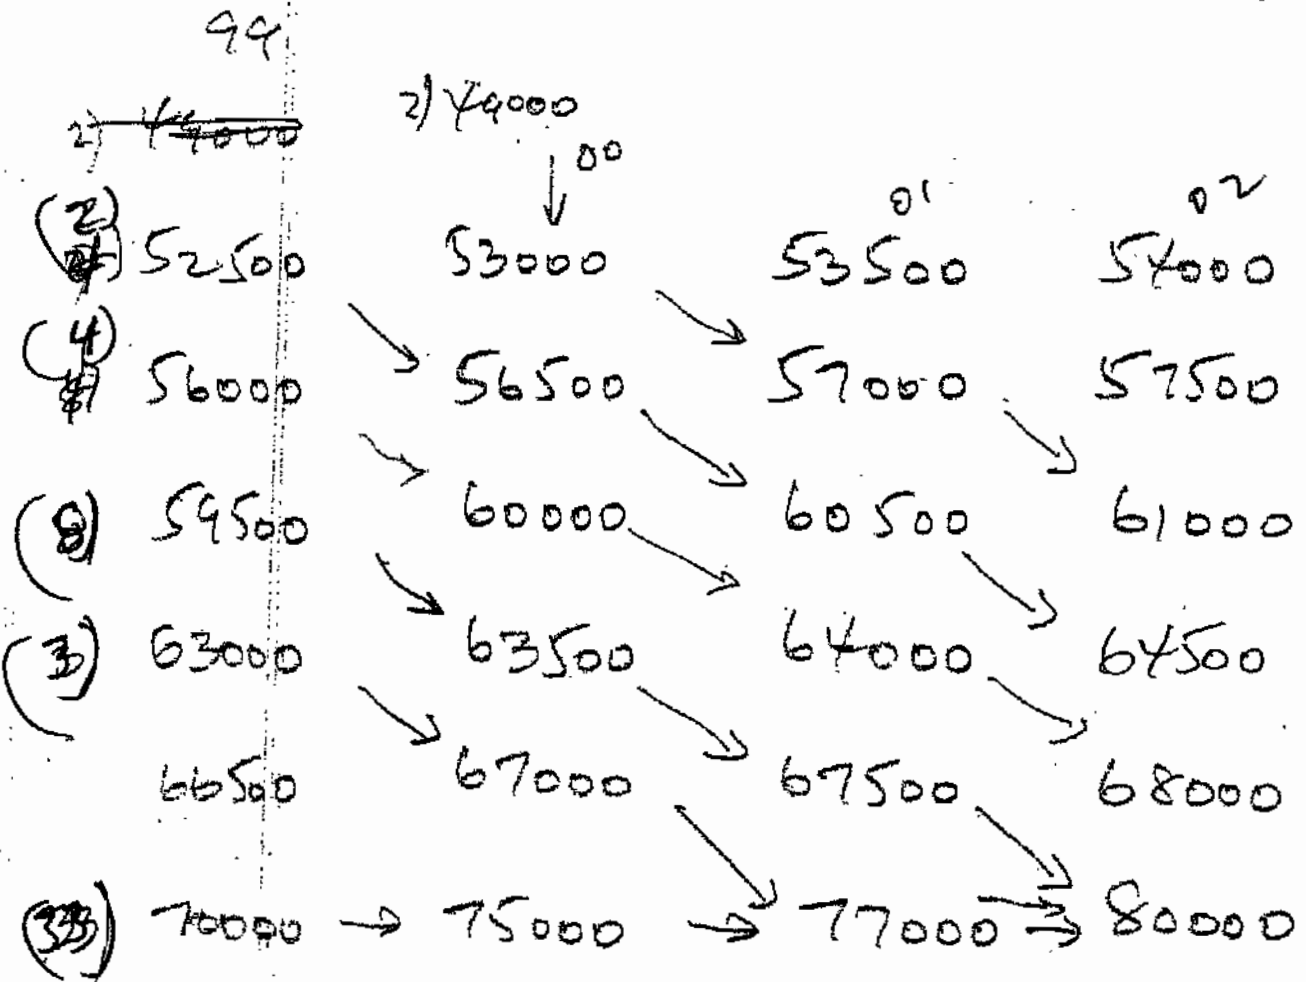 99
2) 49000
2) 49000
00
01
02
(2) 52500 53000 53500 54000
(4) 56000 56500 57000 57500
(8) 59500 60000 60500 61000
(3) 63000 63500 64000 64500
66500 67000 67500 68000
70000 75000 77000 80000